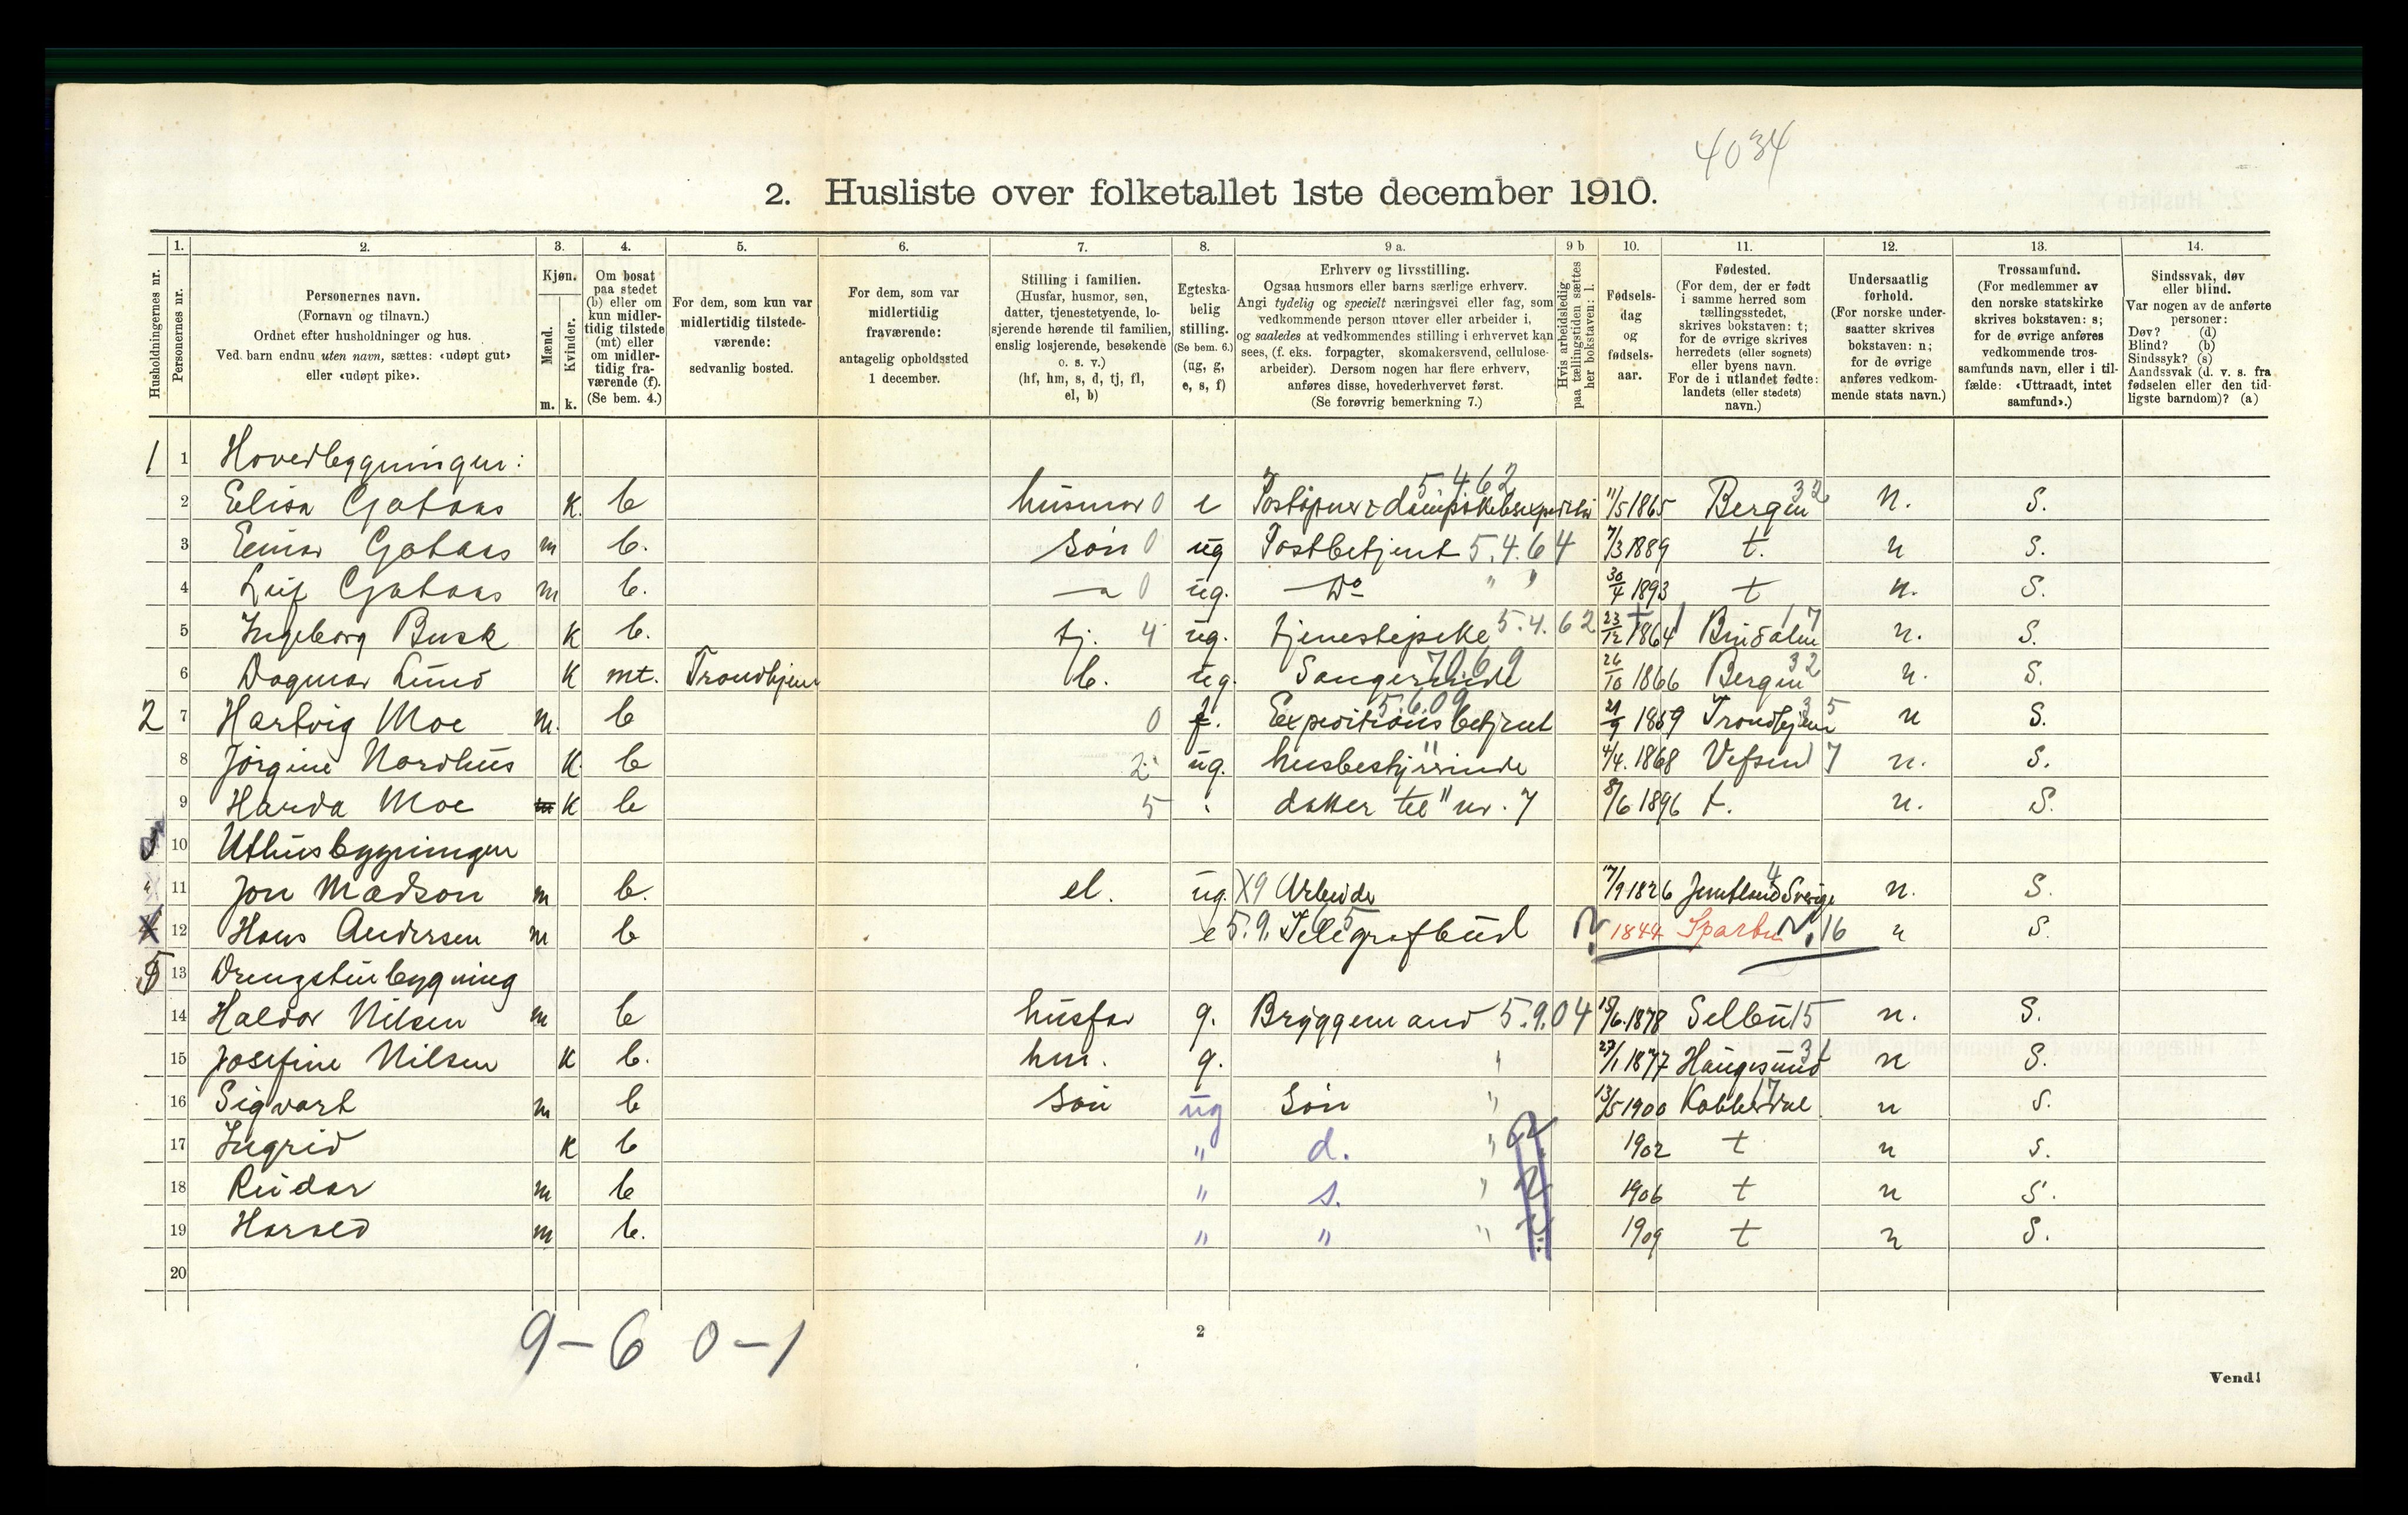 4034
2. Husliste over folketallet 1ste december 1910.
Husholdningernes nr.
1. Personernes nr.
2. Personernes navn.
(Fornavn og tilnavn.)
Ordnet efter husholdninger og hus.
Ved. barn endnu uten navn, sættes: «udøpt gut»
eller «udøpt pike».
3. Kjøn.
Mænd. m.
Kvinder. k.
4. Om bosat
paa stedet
(b) eller om
kun midler-
tidig tilstede
(mt) eller
om midler-
tidig fra-
værende (f).
(Se bem. 4.)
5. For dem, som kun var
midlertidig tilstede-
værende:
sedvanlig bosted.
6. For dem, som var
midlertidig
fraværende:
antagelig opholdssted
1 december.
7. Stilling i familien.
(Husfar, husmor, søn,
datter, tjenestetyende, lo-
sjerende hørende til familien,
enslig losjerende, besøkende
o. s. v.)
(hf, hm, s, d, tj, fl,
el, b)
8. Egteska-
belig
stilling.
(Se bem. 6.)
(ug, g,
e, s, f)
9 a. Erhverv og livsstilling.
Ogsaa husmors eller barns særlige erhverv.
Angi tydelig og specielt næringsvei eller fag, som
vedkommende person utøver eller arbeider i,
og saaledes at vedkommendes stilling i erhvervet kan
sees, (f. eks. forpagter, skomakersvend, cellulose-
arbeider). Dersom nogen har flere erhverv,
anføres disse, hovederhvervet først.
(Se forøvrig bemerkning 7.)
9 b Hvis arbeidsledig
paa tællingstiden sættes
her bokstaven: l.
10. Fødsels-
dag
og
fødsels-
aar.
11. Fødested.
(For dem, der er født
i samme herred som
tællingsstedet,
skrives bokstaven: t;
for de øvrige skrives
herredets (eller sognets)
eller byens navn.
For de i utlandet fødte:
landets (eller stedets)
navn.)
12. Undersaatlig
forhold.
(For norske under-
saatter skrives
bokstaven: n;
for de øvrige
anføres vedkom-
mende stats navn.)
13. Trossamfund.
(For medlemmer av
den norske statskirke
skrives bokstaven: s;
for de øvrige anføres
vedkommende tros-
samfunds navn, eller i til-
fælde: «Uttraadt, intet
samfund».)
14. Sindssvak, døv
eller blind.
Var nogen av de anførte
personer:
Døv? (d)
Blind? (b)
Sindssyk? (s)
Aandssvak (d. v. s. fra
fødselen eller den tid-
ligste barndom)? (a)
1 1 Hovedbygningen:
2 Elisa K. b husmor 0 e 5.462 11/5 1865 Bergen 32 n. S.
3 Einar m b. søn 0 ug Postbetjent 5.4.64 7/3 1889 t. n S.
4 Leif m b. 0 ug. Do " " 30/4 1893 t n. S.
5 Ingeborg Busk K b. tj. 4 ug. tjenestepike 5.4.62 23/12 1864 Bindalen 17 n. S.
6 Dagmar Lund K mt. Trondhjem b. ug. Sangerinde 7069 26/10 1866 Bergen 32 n. S.
2 7 Hartvig Moe m. b 0 f. Expeditionsbetjent 5.609 21/9 1859 Trondhjem 35 n S.
8 Jörgine Nordhus K. b 2. ug. husbestyrerinde " 4/4. 1868 Vefsen 17 n. S.
9 Harda Moe K b 5 datter til nr. 7 " 8/6 1896 t. n. S.
10 Uthusbygningen
11 Jon Madson m b. el. ug. X9 Arbeider 17/9 1826 Jemtland Sverige 4 n. S.
12 Hans Andersen m b e 5.9. Telegrafbud 5 1844 Sparbu 16 n S.
5 13 Drengstubygning
14 Haldor Nilsen m b husfar g. Bryggemand 5.9.04 18/6 1878 Selbu 15 n. S.
15 Josefine Nilsen K b. hm. g. " 27/1 1877 Haugesund 31 n S.
16 Sigvart m b søn ug søn " 13/5 1900 17 n S.
17 Ingrid K b " d. " 1902 t n S.
18 Reidar m b " s. " 1906 t n S.
19 Harald m b. " " " 1909 t n S.
20
9-6 0-1
2
Vend!